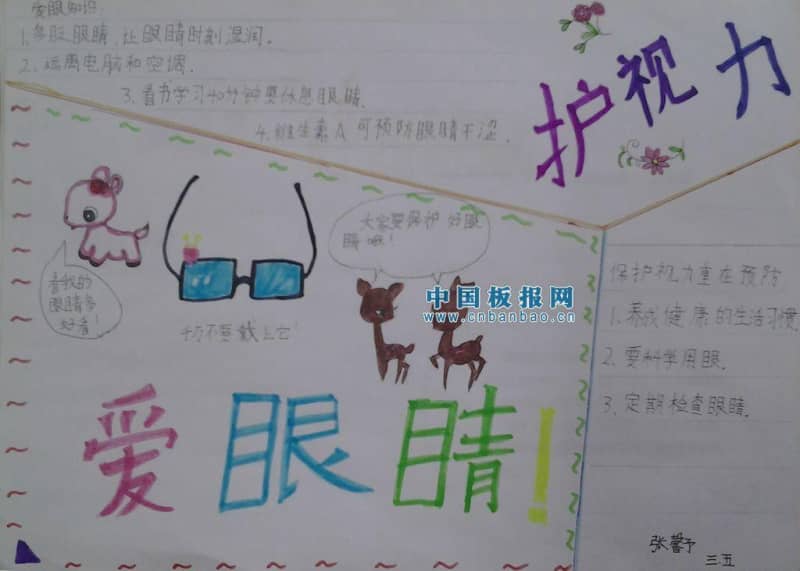 爱眼知识:
1.多眨眼睛,让眼睛时刻湿润.
2.远离电脑和空调.
3.看书学习40分钟要休息眼睛.
4.维生素A可预防眼睛干涩.
护视力
看我的
眼睛多
好看!
千万不要戴上它!
大家要保护好眼
睛哦!
中国板报网
www.cnbanbao.cn
爱眼睛!
保护视力重在预防
1.养成健康的生活习惯
2.要科学用眼.
3.定期检查眼睛.
张馨予
三.五